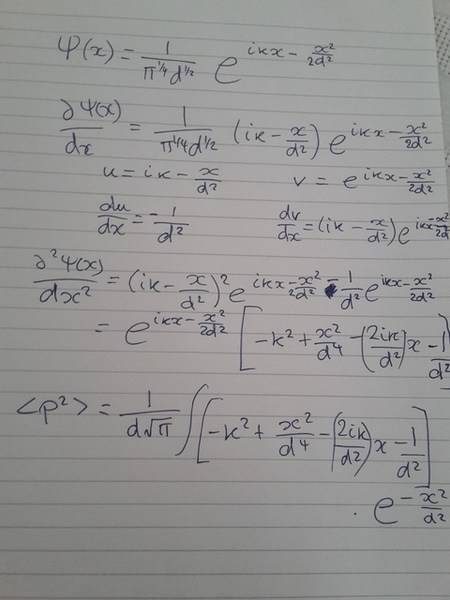 Ψ(x) = 1/(π^1/4 d^1/2) e^(ikx - x²/2d²)
∂Ψ(x)/dx = 1/(π^1/4 d^1/2) (ik - x/d²) e^(ikx - x²/2d²)
u = ik - x/d² v = e^(ikx - x²/2d²)
du/dx = -1/d² dv/dx = (ik - x/d²) e^(ikx - x²/2d²)
∂²Ψ(x)/dx² = (ik - x/d²)² e^(ikx - x²/2d²) - 1/d² e^(ikx - x²/2d²)
= e^(ikx - x²/2d²) [-k² + x²/d⁴ - (2ik/d²)x - 1/d²]
<p²> = 1/(d√π) ∫ [-k² + x²/d⁴ - (2ik/d²)x - 1/d²]
· e^(-x²/d²)